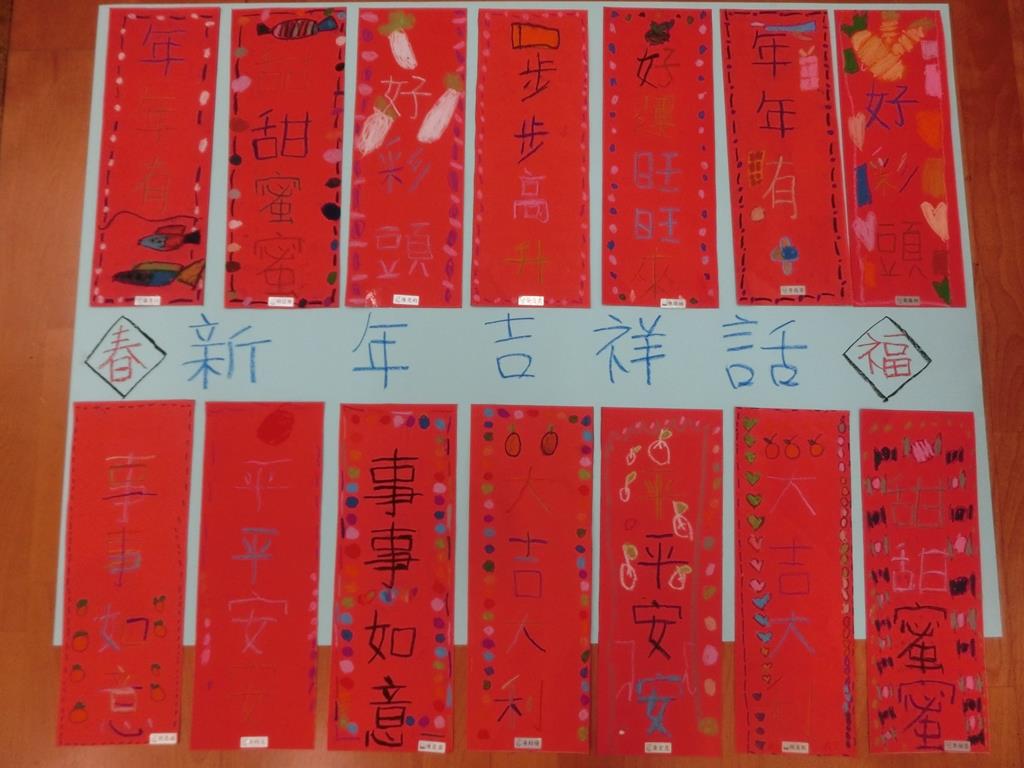 年年有
甜甜蜜蜜
好彩頭
步步高升
好運旺旺來
年年有
好彩頭
春 新年吉祥話 福
事事如意
平平安安
事事如意
大吉大利
平平安安
大吉大利
甜甜蜜蜜